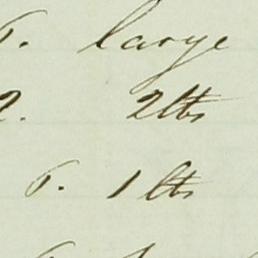 6. large
2. 2lbs
6. 1 lbs